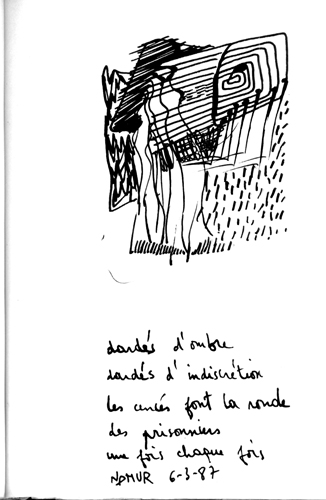 dardés d'ombre
dardés d'indiscrétion
les font la ronde
des prisonniers
une fois chaque fois
NAMUR 6-3-87